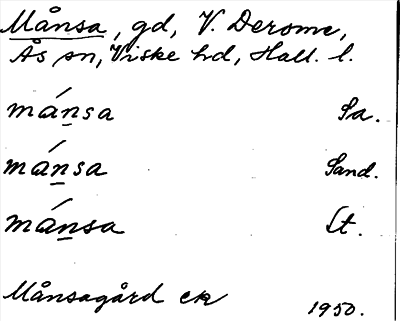 Månsa, gd, V. Derome,
Ås sn, Viske hd, Hall. l.
mánsa Sa.
mánsa Sand.
mánsa Lt.
Månsagård ek 1950.